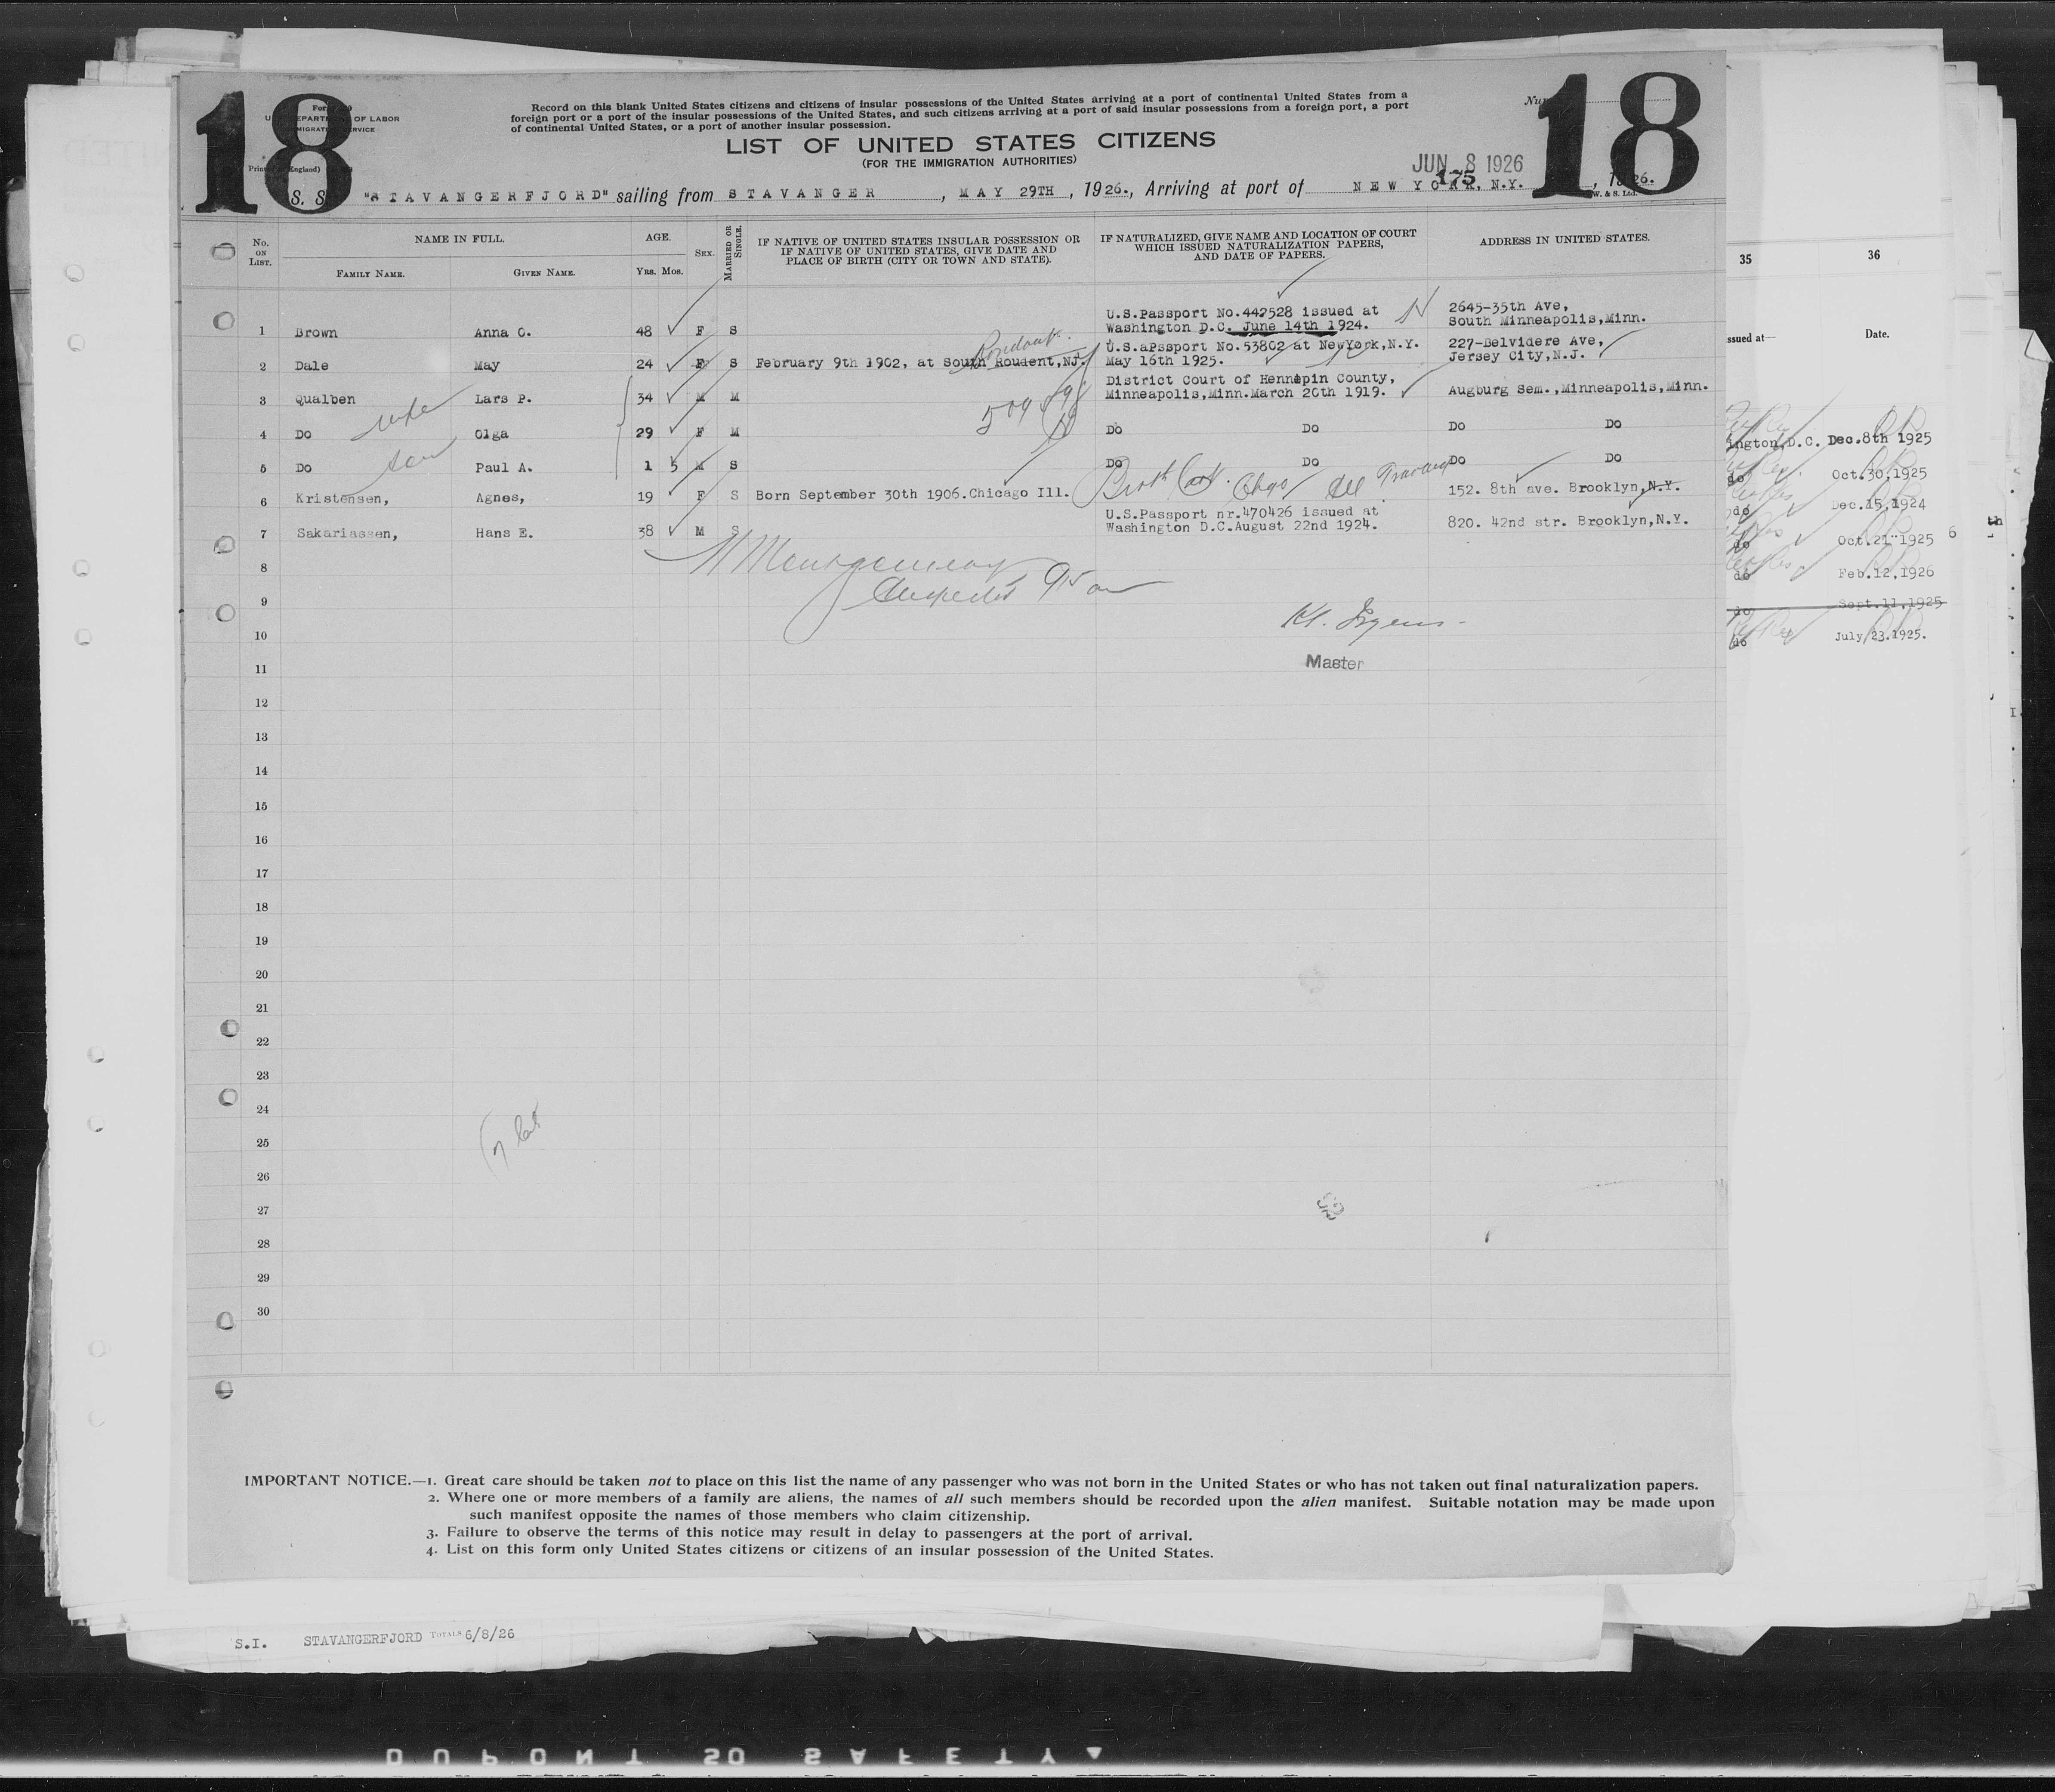 18 18
U. DEPARTMENT OF LABOR
IMMIGRATION SERVICE
Record on this blank United States citizens and citizens of insular possessions of the United States arriving at a port of continental United States from a
foreign port or a port of the insular possessions of the United States, and such citizens arriving at a port of said insular possessions from a foreign port, a port
of continental United States, or a port of another insular possession.
LIST OF UNITED STATES CITIZENS
(FOR THE IMMIGRATION AUTHORITIES)
JUN 8 1926
175
S. S. "STAVANGERFJORD" sailing from STAVANGER, MAY 29TH, 1926., Arriving at port of NEW YORK, N.Y., 1926.
No. ON LIST.
NAME IN FULL.
FAMILY NAME. GIVEN NAME.
AGE.
YRS. MOS.
SEX.
MARRIED OR SINGLE.
IF NATIVE OF UNITED STATES INSULAR POSSESSION OR
IF NATIVE OF UNITED STATES, GIVE DATE AND
PLACE OF BIRTH (CITY OR TOWN AND STATE).
IF NATURALIZED, GIVE NAME AND LOCATION OF COURT
WHICH ISSUED NATURALIZATION PAPERS,
AND DATE OF PAPERS.
ADDRESS IN UNITED STATES.
1 Brown Anna C. 48 F S U.S.Passport No.442528 issued at
Washington D.C. June 14th 1924. 2645-35th Ave,
South Minneapolis,Minn.
Rondout
2 Dale May 24 F S February 9th 1902, at South Roudent,NJ. U.S.aPassport No.53802 at NewYork,N.Y.
May 16th 1925. 227-Belvidere Ave,
Jersey City,N.J.
3 Qualben Lars P. 34 M M District Court of Hennepin County,
Minneapolis,Minn.March 20th 1919. Augburg Sem.,Minneapolis,Minn.
wife
4 Do Olga 29 F M Do Do Do Do
son
5 Do Paul A. 1 5 M S Do Do Do Do
6 Kristensen, Agnes, 19 F S Born September 30th 1906.Chicago Ill. Birth Cert. Chgo 152. 8th ave. Brooklyn,N.Y.
7 Sakariassen, Hans E. 38 M S U.S.Passport nr.470426 issued at
Washington D.C.August 22nd 1924. 820. 42nd str. Brooklyn,N.Y.
8
Montgomery
9
10
11
Master
12
13
14
15
16
17
18
19
20
21
22
23
24
25
26
27
28
29
30
35 36
issued at— Date.
ington,D.C. Dec.8th 1925
do Oct.30,1925
do Dec.15,1924
do Oct.21 1925 6
do Feb.12,1926
do Sept.11,1925
do July 23.1925.
IMPORTANT NOTICE.—1. Great care should be taken not to place on this list the name of any passenger who was not born in the United States or who has not taken out final naturalization papers.
2. Where one or more members of a family are aliens, the names of all such members should be recorded upon the alien manifest. Suitable notation may be made upon
such manifest opposite the names of those members who claim citizenship.
3. Failure to observe the terms of this notice may result in delay to passengers at the port of arrival.
4. List on this form only United States citizens or citizens of an insular possession of the United States.
S.I. STAVANGERFJORD TOTALS 6/8/26
DUPONT 50 SAFETY